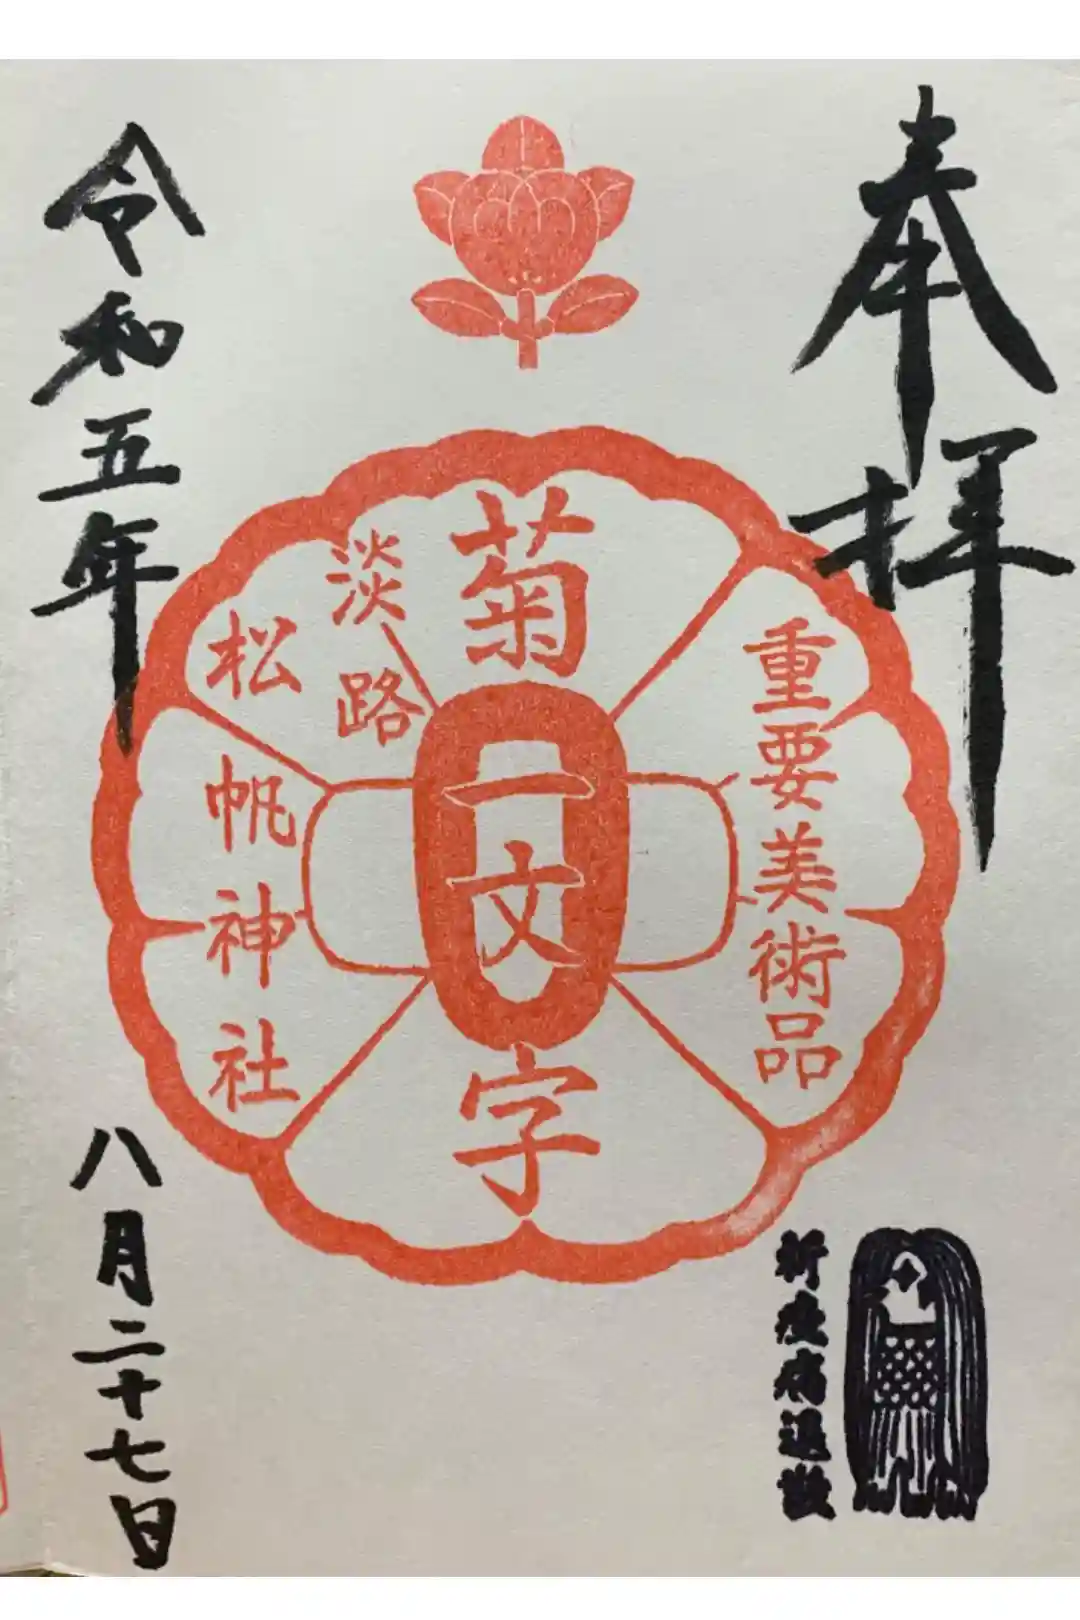 奉拝
重要美術品
菊一文字
淡路
松帆神社
令和五年
八月二十七日
祈疫病退散